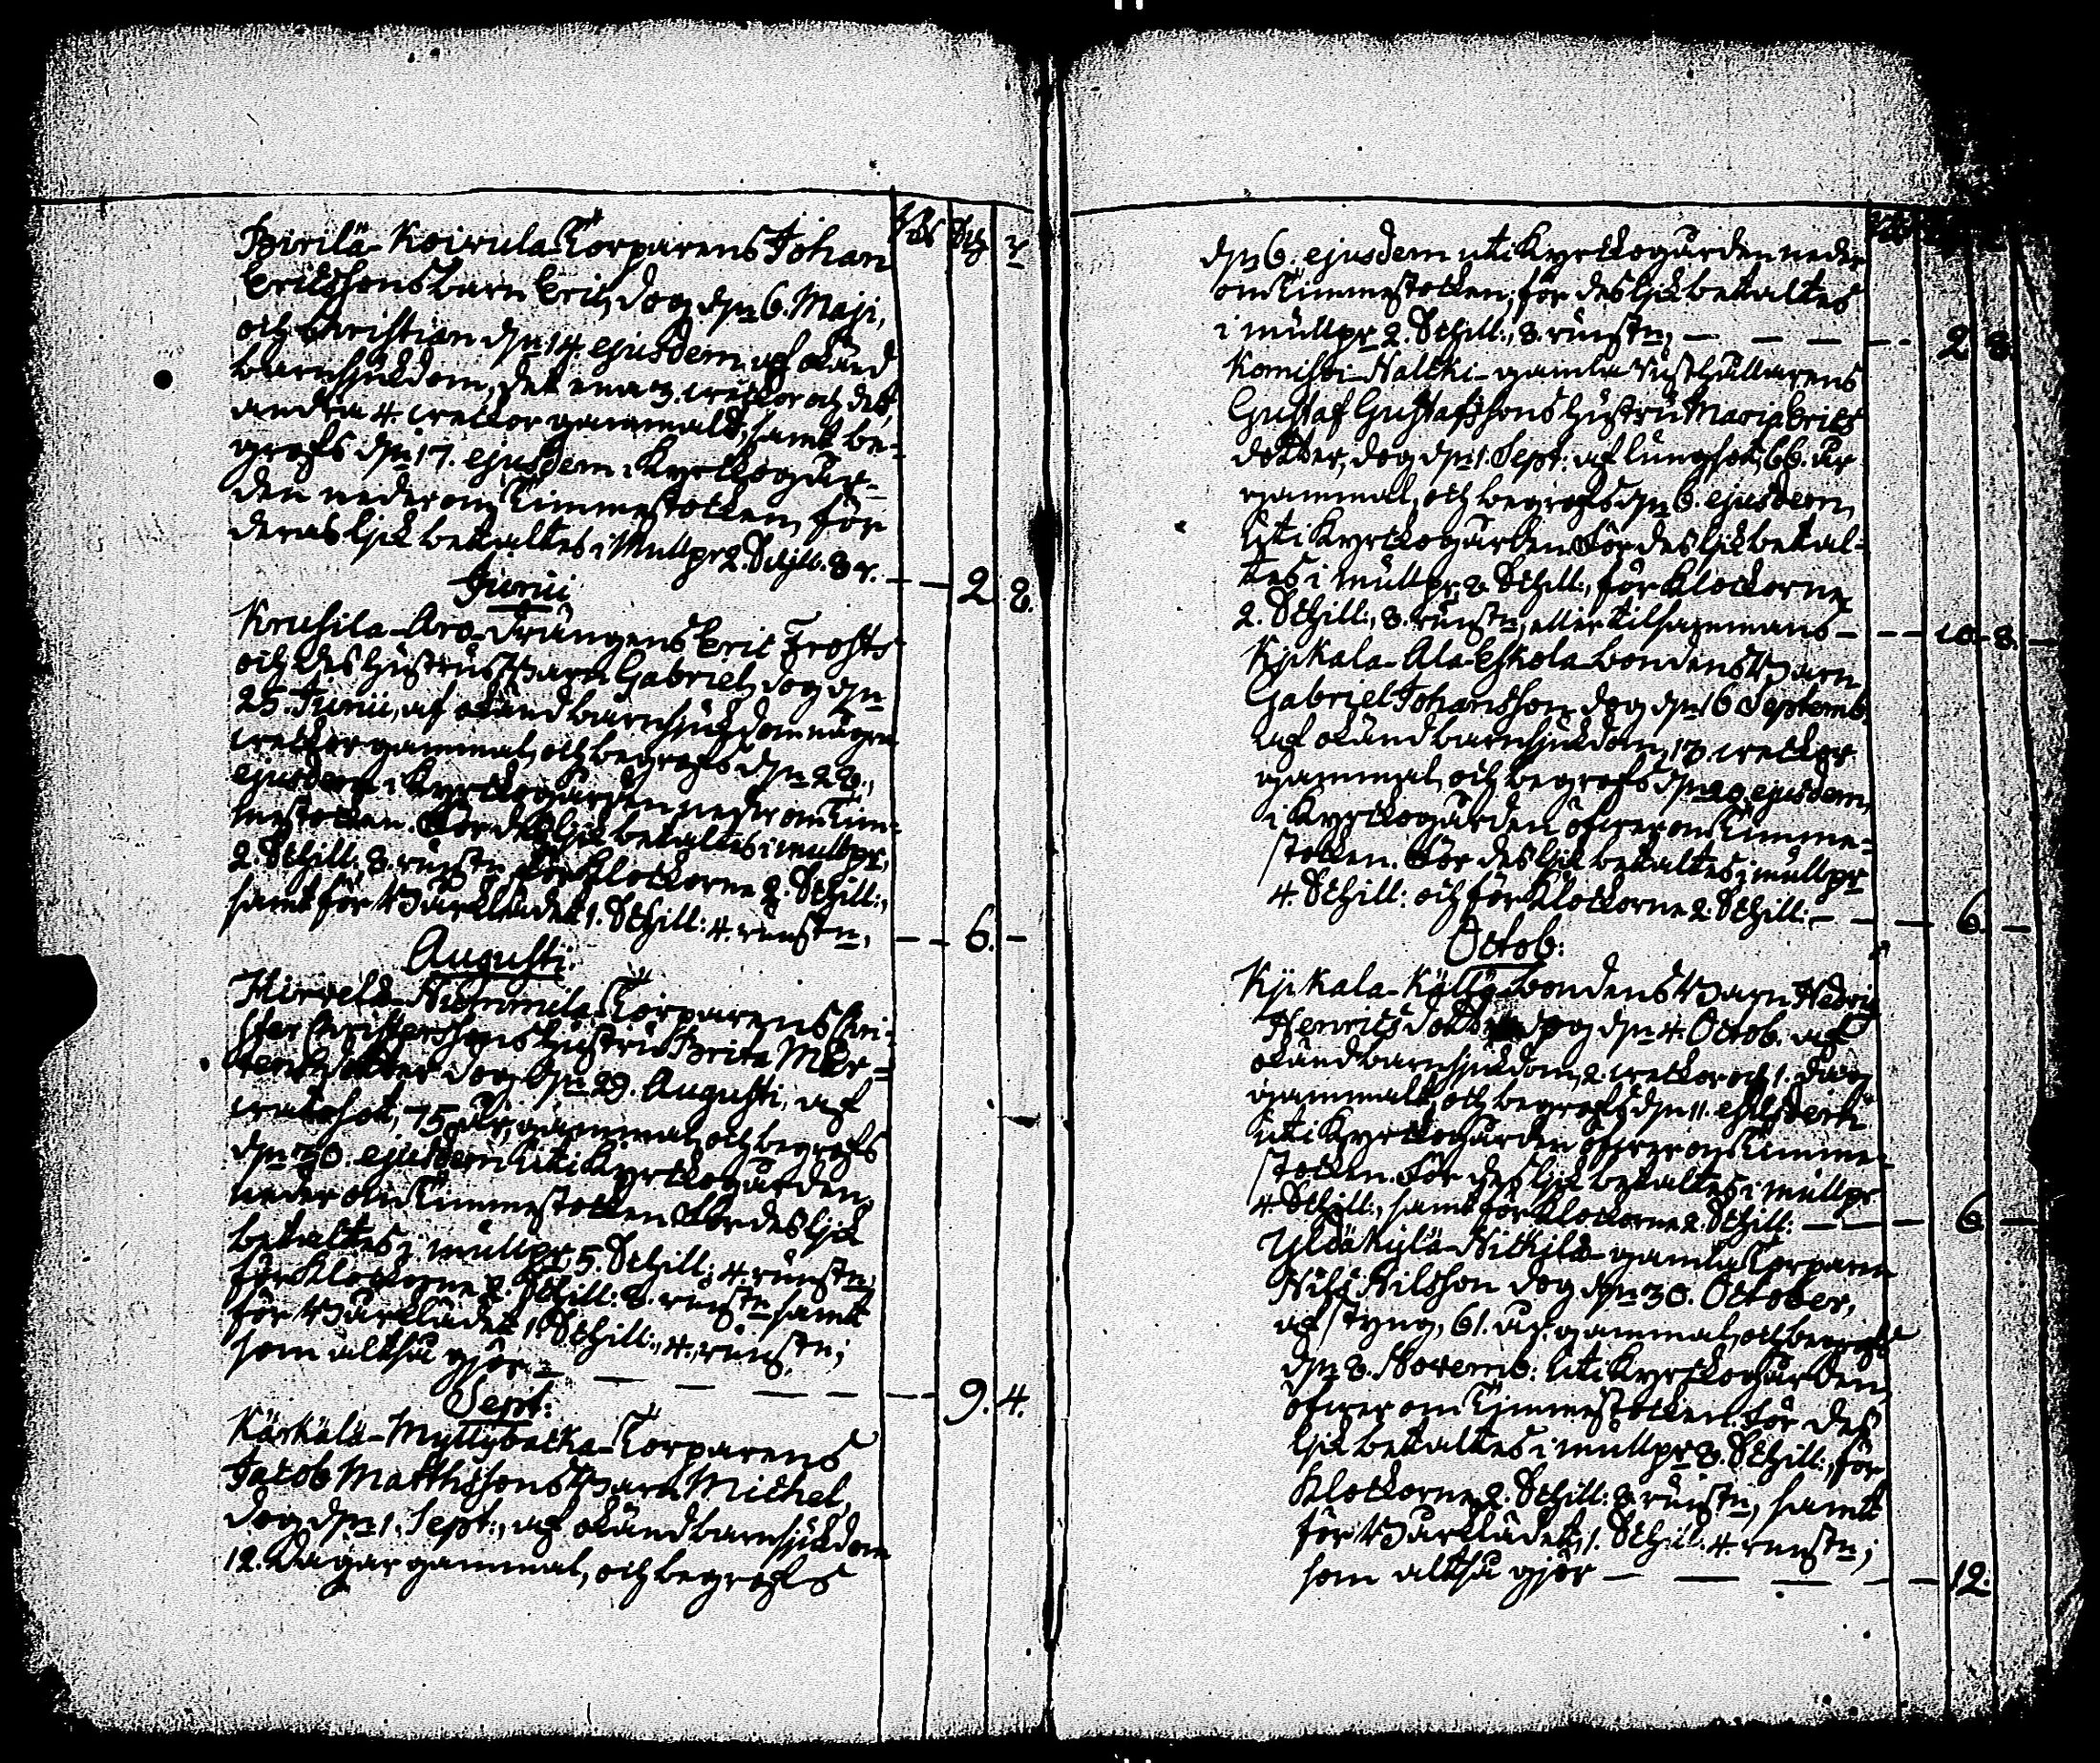 Pirilä-Koivula-Torparens Johan
Ericssons barn Eric, dog d:n 6. Maji,
och Christian d:n 14. ejusdem af okänd
barnsjukdom, det ena 3. weckor och det
andra 4. weckor gammalt, samt be-
grofs d:n 17. ejusdem i Kyrckogår-
den nederom Timmestocken, för
deras lijk betaltes i Mullpr 2. Schill. 8 r. — — 2 8.
Junii
Krusila-Aro-Drängens Eric Frosts
och des hustrus Barn Gabriel, dog d:n
25. Junii, af okänd barnsjukdom några
weckor gammal, och begrofs d:n 28.,
ejusdem i Kyrckogården nederom Tim-
mestocken. För des lijk betaltes i mullpr,
2. Schill. 8. runst:n, för Klockorne 2. Schill:,
samt för Bårklädet 1. Schill: 4. runst:n, — — 6. —
Augusti.
Hirvelä-Torparens Chri-
ster Christerssons hustru Brita Mår-
tensdotter dog d:n 29. Augusti, af
watusot, 75 år, gammal, och begrofs
d:n 30. ejusdem uti Kyrckogården
nederom Timmestocken. För des lijk
betaltes i mullpr 5. Schill: 4. runst:n,
för Klockorne 2. Schill: 8. runst:n samt
för Bårklädet 1. Schill:, 4. runst:n;
som altså gjör — — — — — 9. 4.
Sept:
Kärkälä-Myllybacka-Torparens
Jacob Matthssons Barn Michel,
dog d:n 1. Sept:, af okänd barnsjukdom
12. Dagar gammal, och begrofs
d:n 6. ejusdem uti Kyrckogården neder
om Timmestocken, för des lijk betaltes
i mullpr 2. Schill:, 8. runst:n, — — — — 2 8
Gamla Rusthållarens
Gustaf Gustafssons hustru Maria Erics
dotter, dog d:n 1. Sept: af lungsot, 66. år
gammal, och begrofs d:n 6. ejusdem,
uti Kyrckogården. För des lijk betal-
tes i mullpr. 8 Schill:, för Klockorne
2. Schill:, 8. runst:n, eller tilsammans — — — 10. 8. —
Kjikala-Ala-Eskola-bondens Barn
Gabriel Johansson dog d:n 16 Septemb.
af okänd barnsjukdom, 13. weckor
gammal, och begrofs d:n 20 ejusdem,
i Kyrckogården ofwerom Timme-
stocken. För des lijk betaltes i mullpr
4. Schill: och för Klockorne 2. Schill: — — — 6. —
Octob:
Kjikala-bondens Barn Hedvig
Henricsdotter dog d:n 4. Octob. af
okänd barnsjukdom, 2. weckor och 1. dag
gammalt, och begrofs d:n 11. ejusdem
uti Kyrckogården ofwerom Timme-
stocken. För des lijk betaltes i mullpr
4. Schill:, samt för Klockorne 2. Schill: — — — 6 —
gamla Torparen
Nils Nilsson dog d:n 30. October,
af styng, 61. år. gammal, och begrofs
d:n 8. Novemb: uti Kyrckogården,
ofwerom Timmestocken. För des
lijk betaltes i mullpr 8. Schill:, för
Klockorne 2. Schill: 8. runst:n, samt
för Bårklädet, 1. Schill. 4. runst:n;
som altså gjör — — — — — 12.